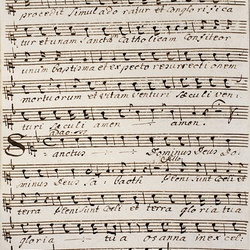 procedit simul adoratur et conglorifica
tur et unam Sanctam Catholicam Confiteor
unum baptisma et expecto resurrectionem
mortuorum et vitam venturi saeculi ven
turi saeculi amen amen.
Sanctus Dominus Deus Do
minus Deus Sabaoth pleni sunt coeli et
terra pleni sunt coeli et terra gloria tua
gloria tua osanna in excel